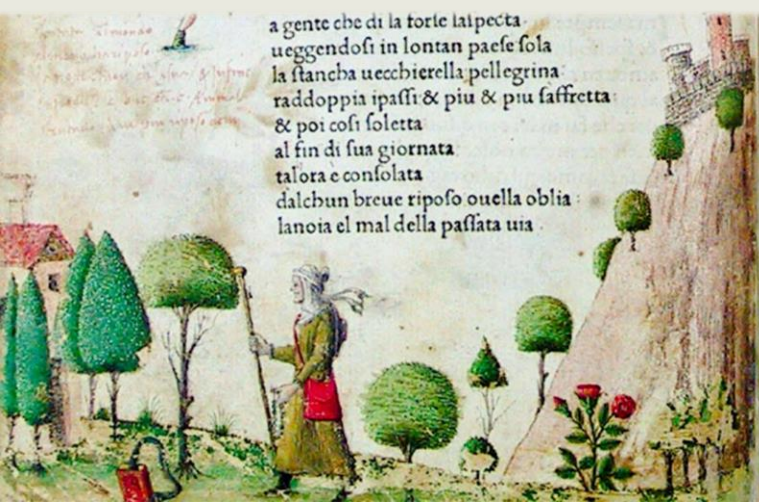 a gente che di la forſe laſpecta
ueggendoſi in lontan paeſe ſola
la ſtancha uecchierella pellegrina
raddoppia ipaſſi & piu & piu ſaffretta
& poi coſi ſoletta
al fin di ſua giornata
talora e conſolata
dalchun breue ripoſo ouella oblia :
lanoia el mal della paſſata uia